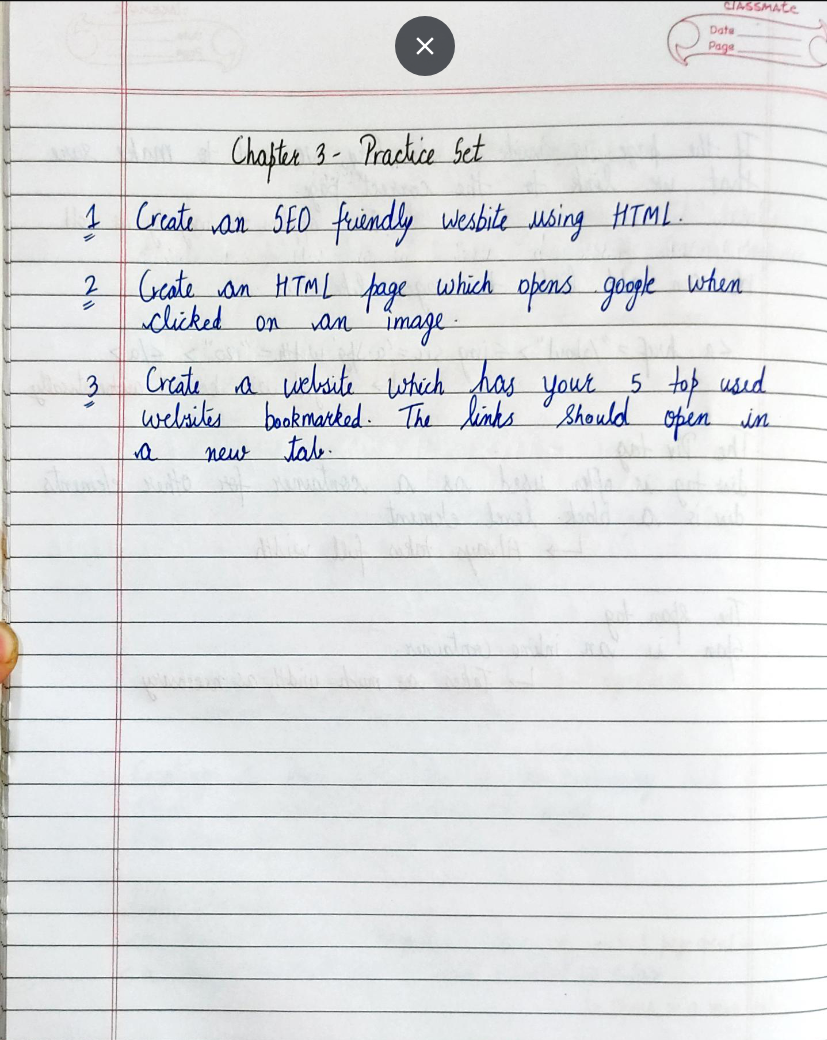 CLASSMATE
Date
Page
Chapter 3 - Practice Set
1 Create an SEO friendly wesbite using HTML.
2 Create an HTML page which opens google when
clicked on an image.
3 Create a website which has your 5 top used
websites bookmarked. The links should open in
a new tab.